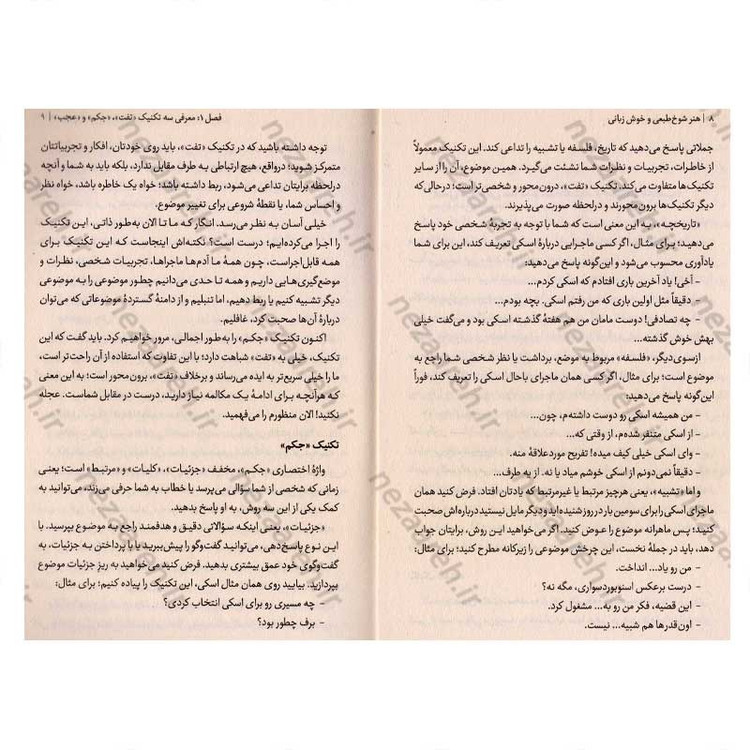 ۸ | هنر شوخ‌طبعی و خوش زبانی
جملاتی پاسخ می‌دهید که تاریخ، فلسفه یا تشبیه را تداعی کند. این تکنیک معمولاً
از خاطرات، تجربیات و نظرات شما نشئت می‌گیرد. همین موضوع، آن را از سایر
تکنیک‌ها متفاوت می‌کند. تکنیک «تفت»، درون‌محور و شخصی‌تر است؛ درحالی‌که
دیگر تکنیک‌ها برون محورند و درلحظه صورت می‌پذیرند.
«تاریخچه»، به این معنی است که شما با توجه به تجربهٔ شخصی خود پاسخ
می‌دهید؛ برای مثال، اگر کسی ماجرایی دربارهٔ اسکی تعریف کند، این برای شما
یادآوری محسوب می‌شود و این‌گونه پاسخ می‌دهید:
– آخی! یاد آخرین باری افتادم که اسکی کردم...
– دقیقاً مثل اولین باری که من رفتم اسکی. بچه بودم...
– چه تصادفی! دوست مامان من هم هفتهٔ گذشته اسکی بود و می‌گفت خیلی
بهش خوش گذشته...
ازسوی‌دیگر، «فلسفه» مربوط به موضع، برداشت یا نظر شخصی شما راجع به
موضوع است؛ برای مثال، اگر کسی همان ماجرای باحال اسکی را تعریف کند، فوراً
این‌گونه پاسخ می‌دهید:
– من همیشه اسکی رو دوست داشته‌م، چون...
– از اسکی متنفر شده‌م، از وقتی که...
– وای اسکی خیلی کیف میده! تفریح موردعلاقهٔ منه.
– دقیقاً نمی‌دونم از اسکی خوشم میاد یا نه. از یه طرف...
و اما «تشبیه»، یعنی هرچیز مرتبط یا غیرمرتبط که یادتان افتاد. فرض کنید همان
ماجرای اسکی را برای سومین بار در روز شنیده‌اید و دیگر مایل نیستید درباره‌اش صحبت
کنید؛ پس ماهرانه موضوع را عوض کنید. اگر می‌خواهید این روش، برایتان جواب
دهد، باید در جملهٔ نخست، این چرخش موضوعی را زیرکانه مطرح کنید؛ برای مثال:
– من رو یاد... انداخت.
– درست برعکس اسنوبوردسواری، مگه نه؟
– این قضیه، فکر من رو به... مشغول کرد.
– اون‌قدرها هم شبیه... نیست.
فصل ۱: معرفی سه تکنیک «تفت»، «جکم» و «عجب» | ۹
توجه داشته باشید که در تکنیک «تفت»، باید روی خودتان، افکار و تجربیاتتان
متمرکز شوید؛ درواقع، هیچ ارتباطی به طرف مقابل ندارد، بلکه باید به شما و آنچه
درلحظه برایتان تداعی می‌شود، ربط داشته باشد؛ خواه یک خاطره باشد، خواه نظر
و احساس شما، یا نقطهٔ شروعی برای تغییر موضوع.
خیلی آسان به نظر می‌رسد. انگار که ما تا الان به‌طور ذاتی، این تکنیک
را اجرا می‌کرده‌ایم؛ درست است؟ نکته‌اش اینجاست که این تکنیک برای
همه قابل‌اجراست، چون همهٔ ما آدم‌ها ماجراها، تجربیات شخصی، نظرات و
موضع‌گیری‌هایی داریم و همه تا حدی می‌دانیم چطور موضوعی را به موضوعی
دیگر تشبیه کنیم یا ربط دهیم، اما تنبلیم و از دامنهٔ گستردهٔ موضوعاتی که می‌توان
دربارهٔ آن‌ها صحبت کرد، غافلیم.
اکنون تکنیک «جکم» را به‌طور اجمالی، مرور خواهیم کرد. باید گفت که این
تکنیک، خیلی به «تفت» شباهت دارد؛ با این تفاوت که استفاده از آن راحت‌تر است،
ما را خیلی سریع‌تر به ایده می‌رساند و برخلاف «تفت»، برون‌محور است؛ به این معنی
که هرآنچه برای ادامهٔ یک مکالمه نیاز دارید، درست در مقابل شماست. عجله
نکنید! الان منظورم را می‌فهمید.
تکنیک «جکم»
واژهٔ اختصاری «جکم»، مخفف «جزئیات»، «کلیات» و «مرتبط» است؛ یعنی
زمانی که شخصی از شما سؤالی می‌پرسد یا خطاب به شما حرفی می‌زند، می‌توانید به
کمک یکی از این سه روش، به او پاسخ بدهید.
«جزئیات»، یعنی اینکه سؤالاتی دقیق و هدفمند راجع به موضوع بپرسید. با
این نوع پاسخ‌دهی، می‌توانید گفت‌وگو را پیش ببرید یا با پرداختن به جزئیات، به
گفت‌وگوی خود عمق بیشتری بدهید. فرض کنید می‌خواهید به ریز جزئیات موضوع
بپردازید. بیایید روی همان مثال اسکی، این تکنیک را پیاده کنیم؛ برای مثال:
– چه مسیری رو برای اسکی انتخاب کردی؟
– برف چطور بود؟
nezaareh.ir